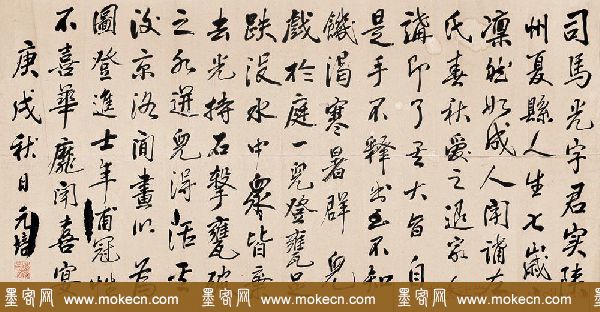 司馬光字君實陝
州夏縣人生七歲
凜然如成人聞講左
氏春秋愛之退家人
講即了其大旨自
是手不釋書至不知
饑渴寒暑群兒
戲於庭一兒登甕足
跌沒水中眾皆棄
去光持石擊甕破
之水迸兒得活其
後京洛間畫以為
圖登進士年甫冠性
不喜華靡聞喜宴
庚戌秋日元培
墨客网 www.mokecn.com 墨客网 www.mokecn.com 墨客网 www.mokecn.com